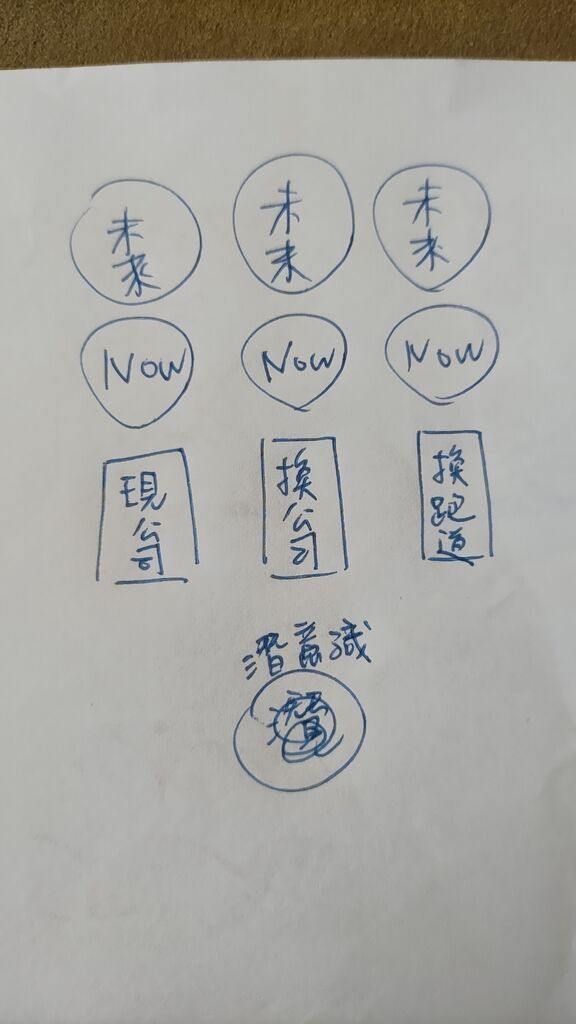 未來
未來
未來
Now
Now
Now
現公司
換公司
換跑道
潛意識